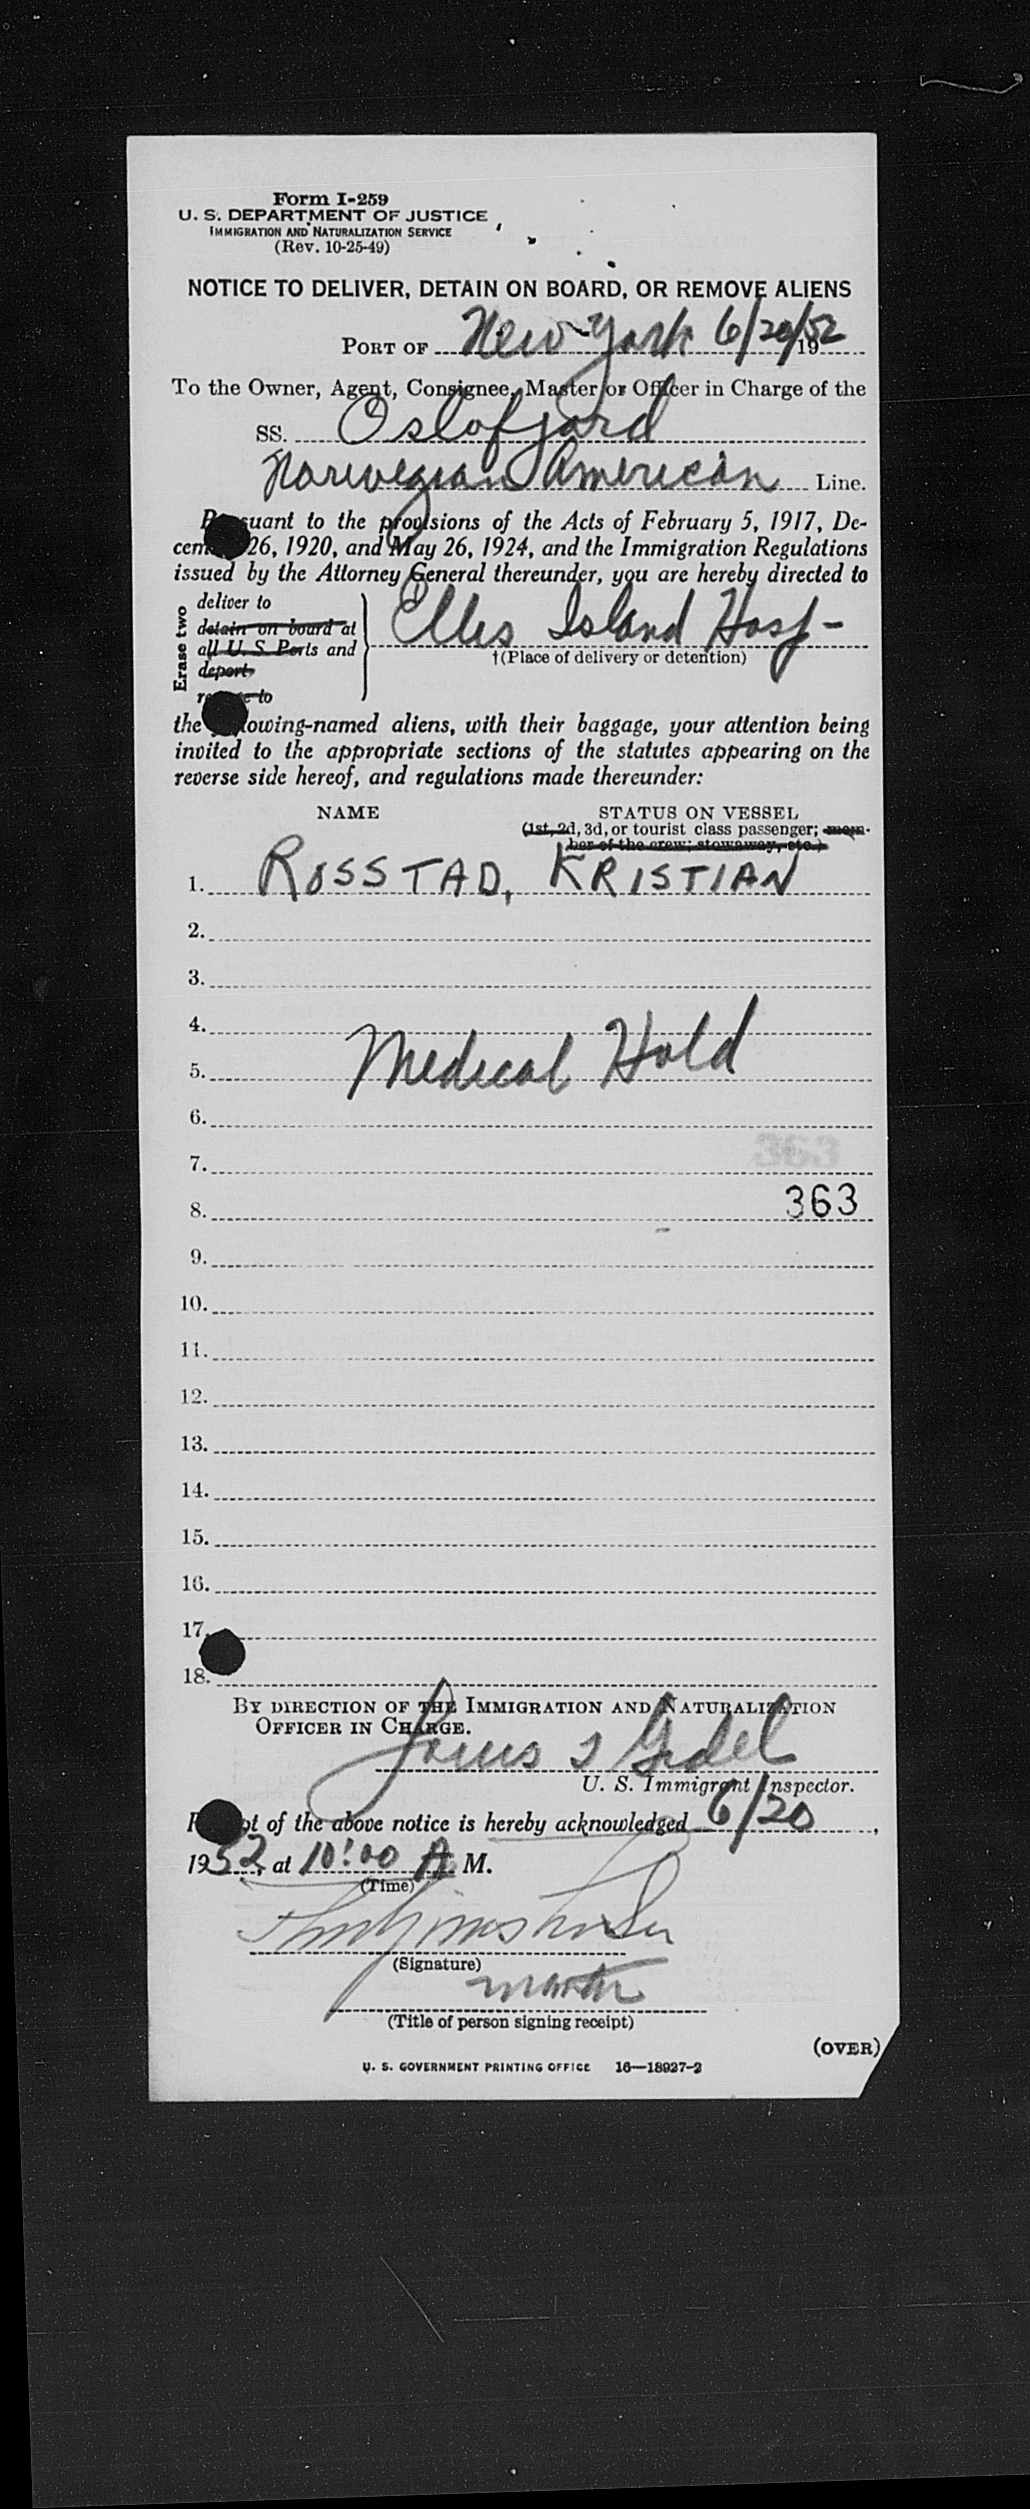 Form I-259
U. S. DEPARTMENT OF JUSTICE
IMMIGRATION AND NATURALIZATION SERVICE
(Rev. 10-25-49)
NOTICE TO DELIVER, DETAIN ON BOARD, OR REMOVE ALIENS
PORT OF New York 6/20/1952
To the Owner, Agent, Consignee, Master or Officer in Charge of the
SS. Oslofjord
Norwegian American Line.
Pursuant to the provisions of the Acts of February 5, 1917, De-
cem 26, 1920, and May 26, 1924, and the Immigration Regulations
issued by the Attorney General thereunder, you are hereby directed to
Erase two
deliver to
detain on board at
all U. S. Ports and
deport
to
Ellis Island Hosp-
†(Place of delivery or detention)
the following-named aliens, with their baggage, your attention being
invited to the appropriate sections of the statutes appearing on the
reverse side hereof, and regulations made thereunder:
NAME STATUS ON VESSEL
(1st, 2d, 3d, or tourist class passenger; mem-
ber of the crew; stowaway, etc.)
1. ROSSTAD, KRISTIAN
2.
3.
4.
Medical Hold
5.
6.
363
7.
8. 363
9.
10.
11.
12.
13.
14.
15.
16.
17.
18.
BY DIRECTION OF THE IMMIGRATION AND NATURALIZATION
OFFICER IN CHARGE.
U. S. Immigrant Inspector.
Receipt of the above notice is hereby acknowledged 6/20,
1952, at 10:00 A M.
(Time)
(Signature)
(Title of person signing receipt)
(OVER)
U. S. GOVERNMENT PRINTING OFFICE 16—18927-2